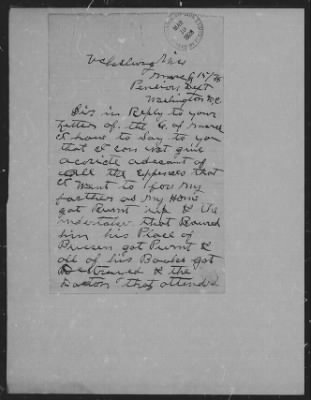 Vicksburg Miss
March 15/28
Pension Dept
Washington D.C.
Sir in Reply to your
Letter of the 6. of March
I have to Say to you
that I con not give
a account of
all the Expences that
I Want to for My
farther as My Home
got Burnt up & the
undertaker that Boured
him his Place of
Bissen got Burnt &
all of his Books got
Destroued & the
Doctor that attended